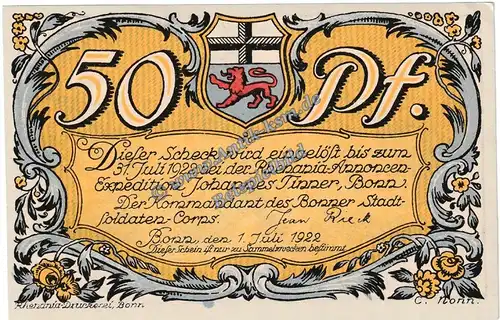 50 Pf.
Dieser Scheck wird eingelöst bis zum
31. Juli 1922 bei der Rhenania-Annoncen-
Expedition Johannes Tinner, Bonn.
Der Kommandant des Bonner Stadt-
soldaten-Corps.
Jean
Bonn, den 1. Juli 1922
Dieser Schein ist nur zu Sammelzwecken bestimmt.
Rhenania-Druckerei, Bonn
C. Nonn.